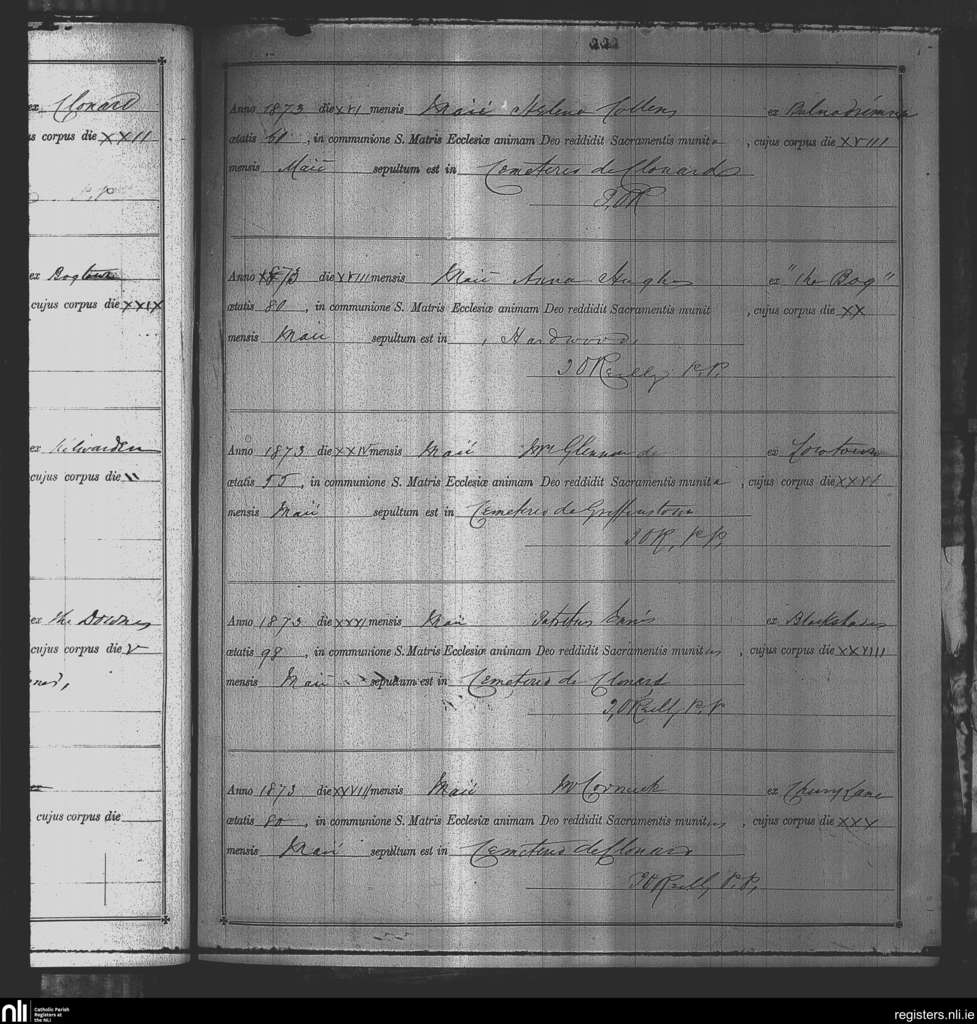 222
ex Clonard
us corpus die XXII
P.P
ex Bogtown
cujus corpus die XXIX
ex Kilwarden
cujus corpus die II
ex the Downes
cujus corpus die V
ex
cujus corpus die
Anno 1873 die XVI mensis Maii Helena Collens ex
ætatis 61, in communione S. Matris Ecclesiæ animam Deo reddidit Sacramentis munita, cujus corpus die XVIII
mensis Maii sepultum est in Cemeterio de Clonard
J, OR
Anno 1873 die XVIII mensis Maii Anna Hughes ex "the Bog"
ætatis 80, in communione S. Matris Ecclesiæ animam Deo reddidit Sacramentis munit, cujus corpus die XX
mensis Maii sepultum est in Hardwood,
J OReilly P.P.
Anno 1873 die XXIV mensis Maii Mrs Glennon de ex Lowtown
ætatis 55, in communione S. Matris Ecclesiæ animam Deo reddidit Sacramentis munita, cujus corpus die XXVI
mensis Maii sepultum est in Cemeterio de Griffinstown
J OR, P.P.
Anno 1873 die mensis Maii ex Blackshade
ætatis 98, in communione S. Matris Ecclesiæ animam Deo reddidit Sacramentis munitus, cujus corpus die XXVIII
mensis Maii sepultum est in Cemeterio de Clonard
J, OReilly P.P
Anno 1873 die XXVIII mensis Maii McCormick ex Cherry Lane
ætatis 80, in communione S. Matris Ecclesiæ animam Deo reddidit Sacramentis munitus, cujus corpus die XXX
mensis Maii sepultum est in Cemeterio de Clonard
J OReilly P.P.
nli Catholic Parish
Registers at
the NLI
registers.nli.ie